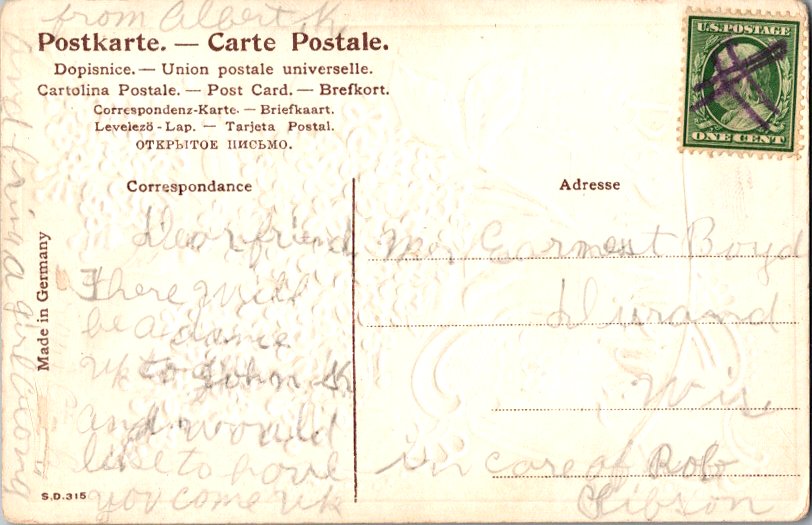 from Albert K
Postkarte. — Carte Postale.
Dopisnice. — Union postale universelle.
Cartolina Postale. — Post Card. — Brefkort.
Correspondenz-Karte. — Briefkaart.
Levelező-Lap. — Tarjeta Postal.
ОТКРЫТОЕ ПИСЬМО.
U.S. POSTAGE
ONE CENT
Correspondance
Adresse
Dear friend
There will
be a dance
up to John K
and would
like to have
you come up
and bring a girl along
Made in Germany
S.D.315
Mr Garment Boyd
Durand
Wis
in care of Rob
Gibson